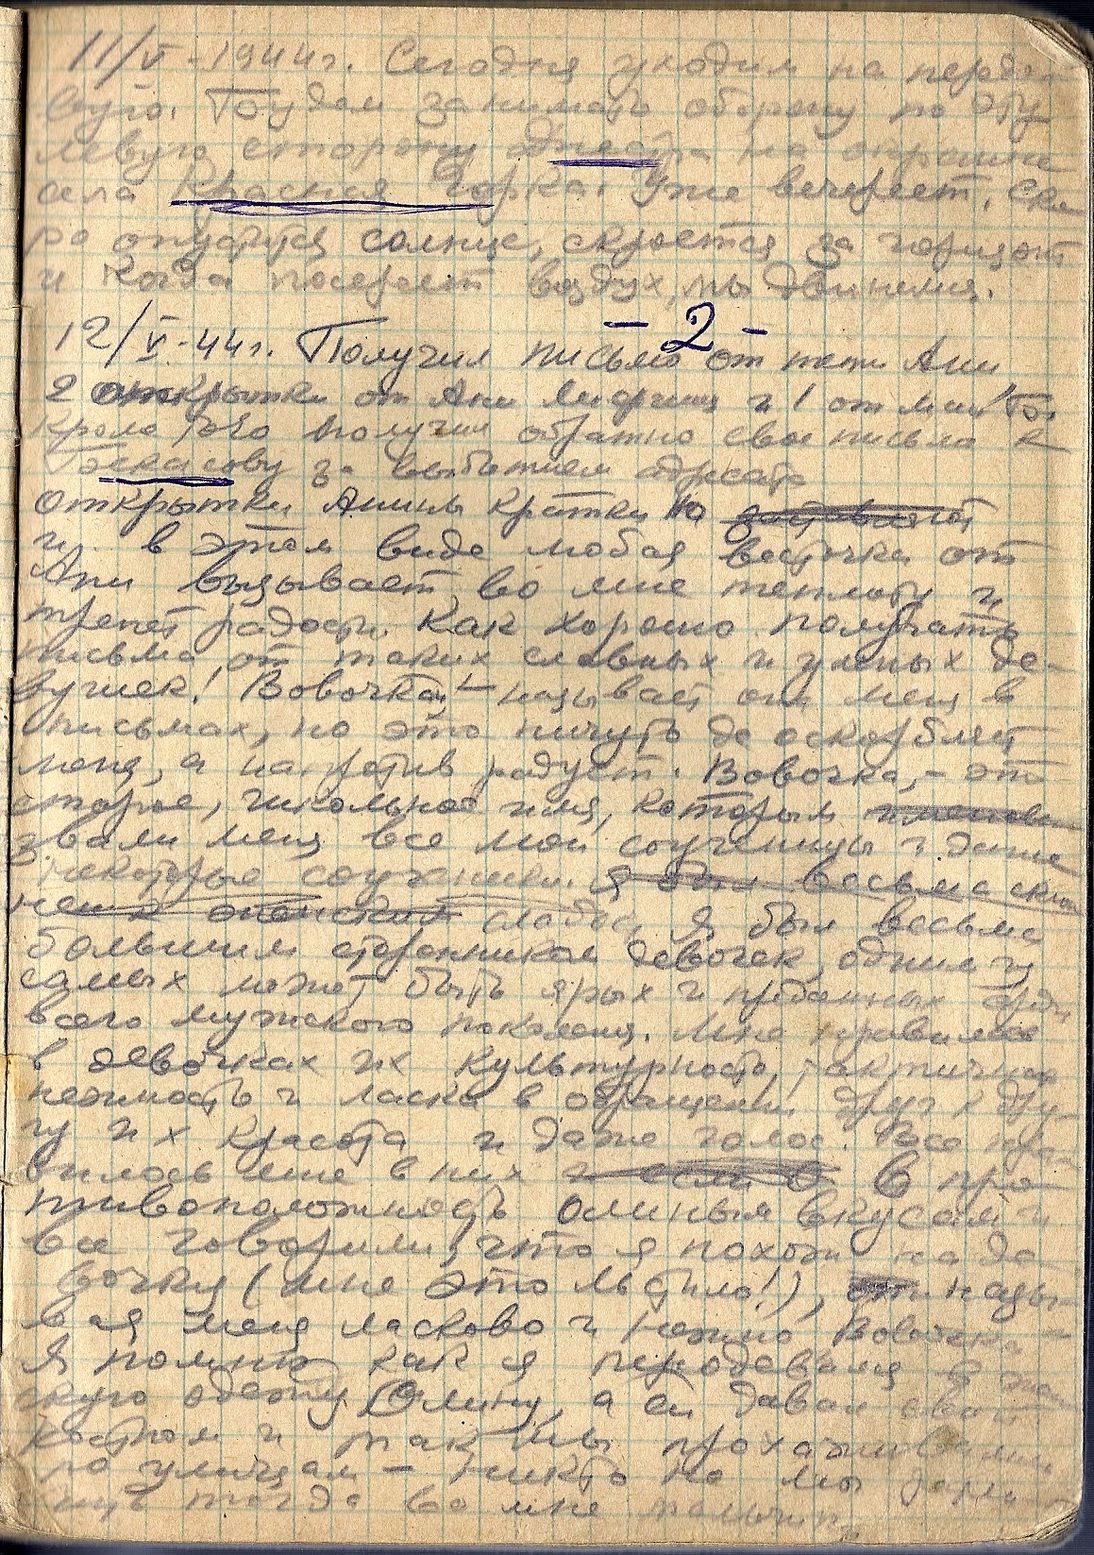 11/V-1944г. Сегодня уходим на передо-
вую. Будем занимать оборону по эту
левую сторону Днестра на окраине
села Красная Горка. Уже вечереет. Ско-
ро опустится солнце, скроется за горизонт
и когда посереет воздух, мы двинемся.
- 2 -
12/V-44г. Получил письмо от тети Ани
2 открытки от Ани и 1 от
получил обратно свое письмо к
за выбытием адресата
открытки Анины кратки но
и в этом виде любая весточка от
Ани вызывает во мне теплоту и
трепет радости. Как хорошо получать
письма от таких славных и умных де-
вушек! "Вовочка" - называет она меня в
письмах, но это ничуть не оскорбляет
меня, а напротив радует. Вовочка, - это
старое, школьное имя, которым
звали меня все мои соученицы и даже
некоторые соученики. Я был весьма
слабос Я был весьма
большим сторонником девочек, одним из
самых может быть ярых и преданных среди
всего мужского поколения. Мне нравилась
в девочках их культурность, тактичность
нежность и ласка в обращении друг к дру-
гу их красота и даже голос. Все нра-
вилось мне в них В про-
тивоположность Олиным вкусам и
все говорили, что я похож на де-
вочку (мне это льстило!), назы-
вая меня ласково и нежно Вовочка
Я помню как я переодевался в жен-
скую одежду Олину, а ей давал свой
костюм и так мы прохаживали
по улицам - никто не
тогда во мне мальчи